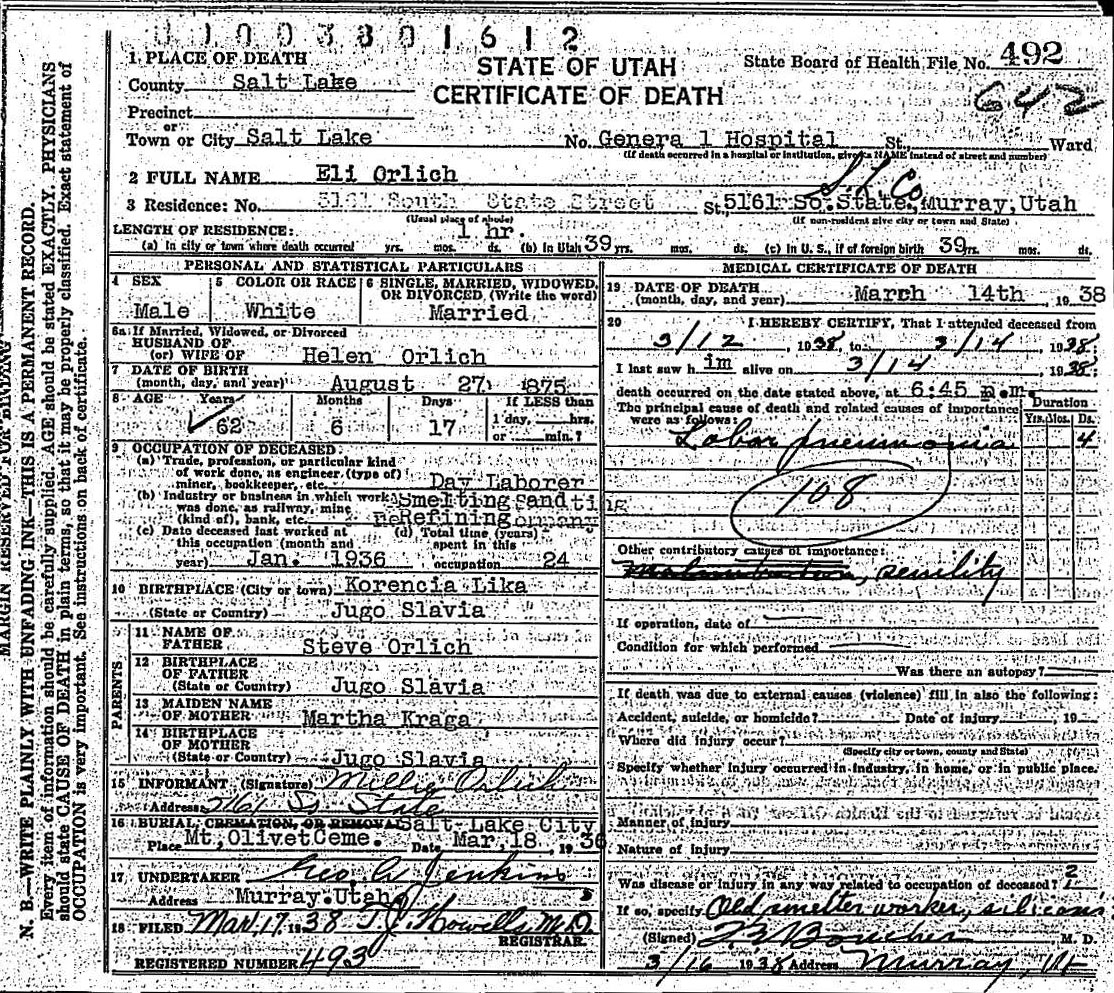 11003801612
1 PLACE OF DEATH
STATE OF UTAH
State Board of Health File No. 492
County Salt Lake
CERTIFICATE OF DEATH
642
Precinct
or
Town or City Salt Lake No. Genera l Hospital St., Ward
(If death occurred in a hospital or institution, give its NAME instead of street and number)
2 FULL NAME Eli Orlich
S. L. Co
3 Residence: No. 5161 South State Street St., 5161 So. State, Murray, Utah
(Usual place of abode) (If non-resident give city or town and State)
LENGTH OF RESIDENCE: 1 hr.
(a) In city or town where death occurred yrs. mos. ds. (b) In Utah 39 yrs. mos. ds. (c) In U. S., if of foreign birth 39 yrs. mos. ds.
PERSONAL AND STATISTICAL PARTICULARS
4 SEX 5 COLOR OR RACE 6 SINGLE, MARRIED, WIDOWED,
OR DIVORCED (Write the word)
Male White Married
6a If Married, Widowed, or Divorced
HUSBAND OF
(or) WIFE OF Helen Orlich
7 DATE OF BIRTH
(month, day, and year) August 27 1875
8 AGE Years Months Days If LESS than
1 day, hrs.
62 6 17 or min.?
9 OCCUPATION OF DECEASED:
(a) Trade, profession, or particular kind
of work done, as engineer (type of)
miner, bookkeeper, etc. Day Laborer
(b) Industry or business in which work
was done, as railway, mine
(kind of), bank, etc.
Smelting and
Refining
(c) Date deceased last worked at (d) Total time (years)
this occupation (month and spent in this
year) Jan. 1936 occupation 24
10 BIRTHPLACE (City or town) Korencia Lika
(State or Country) Jugo Slavia
PARENTS
11 NAME OF
FATHER Steve Orlich
12 BIRTHPLACE
OF FATHER
(State or Country) Jugo Slavia
13 MAIDEN NAME
OF MOTHER Martha Kraga
14 BIRTHPLACE
OF MOTHER
(State or Country) Jugo Slavia
15 INFORMANT (Signature) Orlich
Address So State
16 BURIAL, CREMATION, OR REMOVAL Salt Lake City
Place Mt, Olivet Ceme. Date Mar, 18, 1936
17 UNDERTAKER Geo. A Jenkins
Address Murray, Utah
18 FILED Mar. 17 1938 T. J. Howells M.D.
REGISTRAR.
REGISTERED NUMBER 493
MEDICAL CERTIFICATE OF DEATH
19 DATE OF DEATH
(month, day, and year) March 14th, 1938
20 I HEREBY CERTIFY, That I attended deceased from
3/12, 1938, to 3/14, 1938.
I last saw h im alive on 3/14, 1938.
death occurred on the date stated above, at 6:45 p.m.
The principal cause of death and related causes of importance
were as follows:
Duration
Yrs. Mos. Ds.
Lobar pneumonia 4
108
Other contributory causes of importance:
senility
If operation, date of
Condition for which performed
Was there an autopsy?
If death was due to external causes (violence) fill in also the following:
Accident, suicide, or homicide? Date of injury, 19
Where did injury occur?
(Specify city or town, county and State)
Specify whether injury occurred in industry, in home, or in public place.
Manner of injury
Nature of injury
Was disease or injury in any way related to occupation of deceased? ?
If so, specify Old smelter worker, silicosis
(Signed) Boucher M. D.
3/16 1938 Address Murray, Ut
MARGIN RESERVED FOR BINDING
N. B.—WRITE PLAINLY WITH UNFADING INK—THIS IS A PERMANENT RECORD.
Every item of information should be carefully supplied. AGE should be stated EXACTLY. PHYSICIANS
should state CAUSE OF DEATH in plain terms, so that it may be properly classified. Exact statement of
OCCUPATION is very important. See instructions on back of certificate.